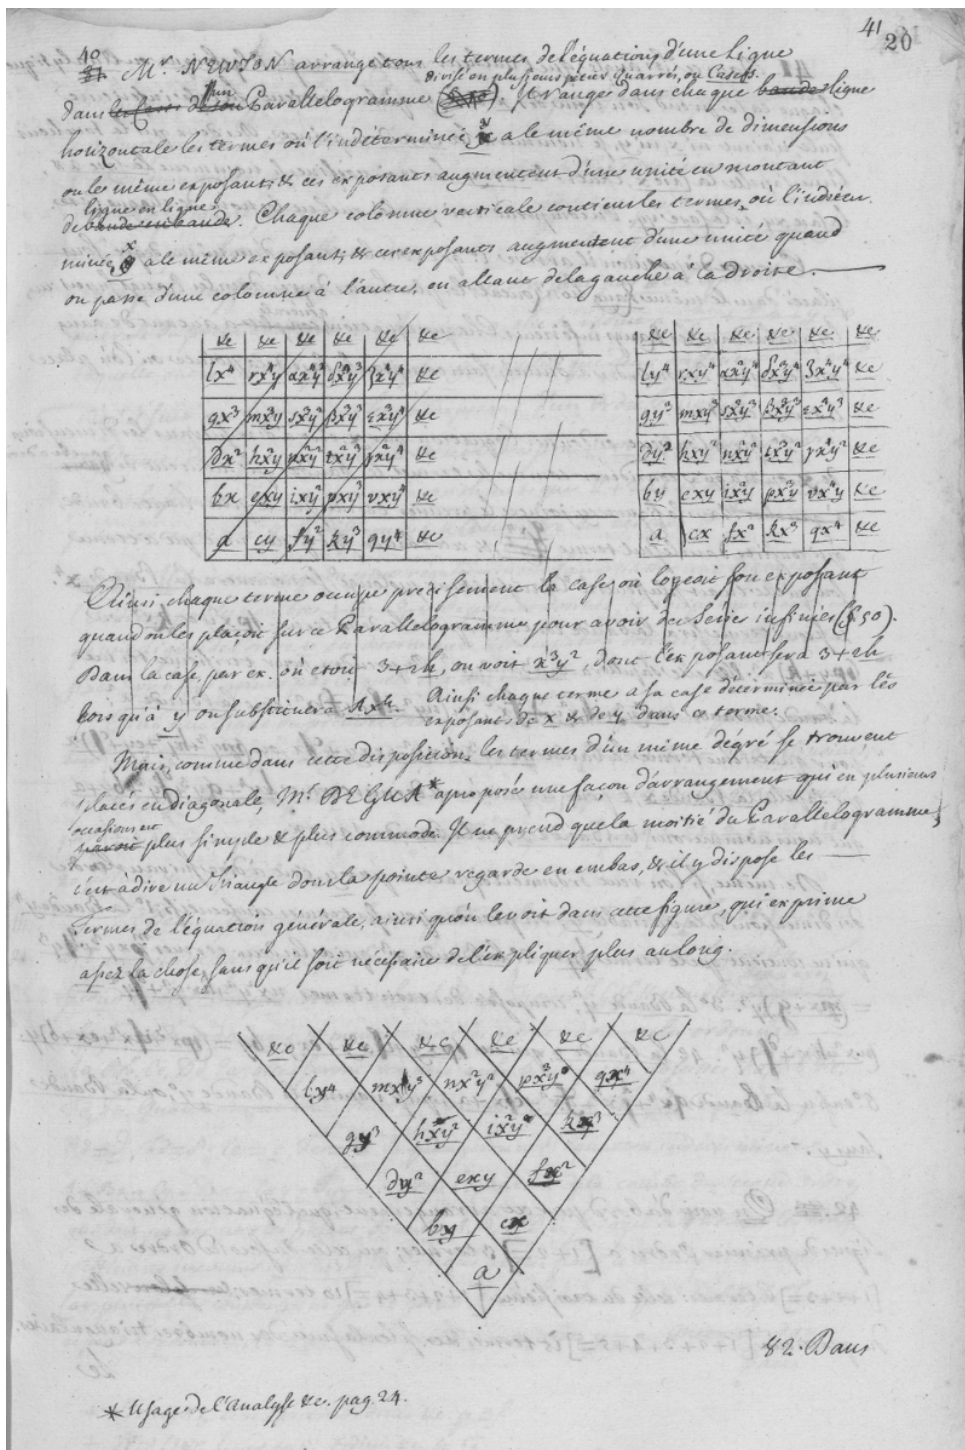 41
20
40
31. Mr. NEWTON arrange tous les termes de l'équation d'une ligne
divisé en plusieurs petits quarrés, ou Cases.
dans les cases de son d'un Parallelogramme. Il range dans chaque bande ligne
horizontale les termes où l'indéterminée y a le même nombre de dimensions
ou le même exposant; & ces exposants augmentent d'une unité en montant
ligne en ligne
de bande en bande. Chaque colomne verticale contient les termes où l'indéter-
minée x a le même exposant; & ces exposants augmentent d'une unité quand
on passe d'une colomne à l'autre, en allant de la gauche à la droite.
&c &c &c &c &c &c
lx⁴ rx⁴y αx⁴y² δx⁴y³ ζx⁴y⁴ &c
gx³ mx³y sx³y² βx³y³ εx³y⁴ &c
dx² hx²y nx²y² tx²y³ γx²y⁴ &c
bx exy ixy² pxy³ vxy⁴ &c
a cy fy² ky³ qy⁴ &c
&c &c &c &c &c &c
ly⁴ rxy⁴ αx²y⁴ δx³y⁴ ζx⁴y⁴ &c
gy³ mxy³ sx²y³ βx³y³ εx⁴y³ &c
dy² hxy² nx²y² tx³y² γx⁴y² &c
by exy ix²y px³y vx⁴y &c
a cx fx² kx³ qx⁴ &c
Ainsi chaque terme occupe précisément la case où logeoit son exposant
quand on les plaçoit sur ce Parallelogramme, pour avoir des Series infinies (§.50).
Dans la case, par ex. où etoit 3+2h, on voit x³y², dont l'exposant sera 3+2h
lorsqu'à y on substituera Axh. Ainsi chaque terme a sa case déterminée par les
exposants de x & de y dans ce terme.
Mais, comme dans cette disposition, les termes d'un même dégré se trouvent
placés en diagonale, Mr. DE GUA* a proposé une façon d'arrangement qui en plusieurs
occasions est
plus simple & plus commode. Il ne prend que la moitié du Parallelogramme,
c'est à dire un Triangle dont la pointe regarde en embas, & il y dispose les
Termes de l'équation générale, ainsi qu'on le voit dans cette figure, qui exprime
assez la chose, sans qu'il soit nécessaire de l'expliquer plus au long.
&c &c &c &c &c &c
ly⁴ mxy³ nx²y² px³y qx⁴
gy³ hxy² ix²y kx³
dy² exy fx²
by cx
a
82. Dans
* Usage de l'Analyse &c. pag. 24.